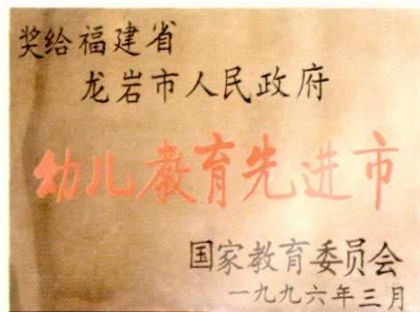 奖给福建省
龙岩市人民政府
幼儿教育先进市
国家教育委员会
一九九六年三月